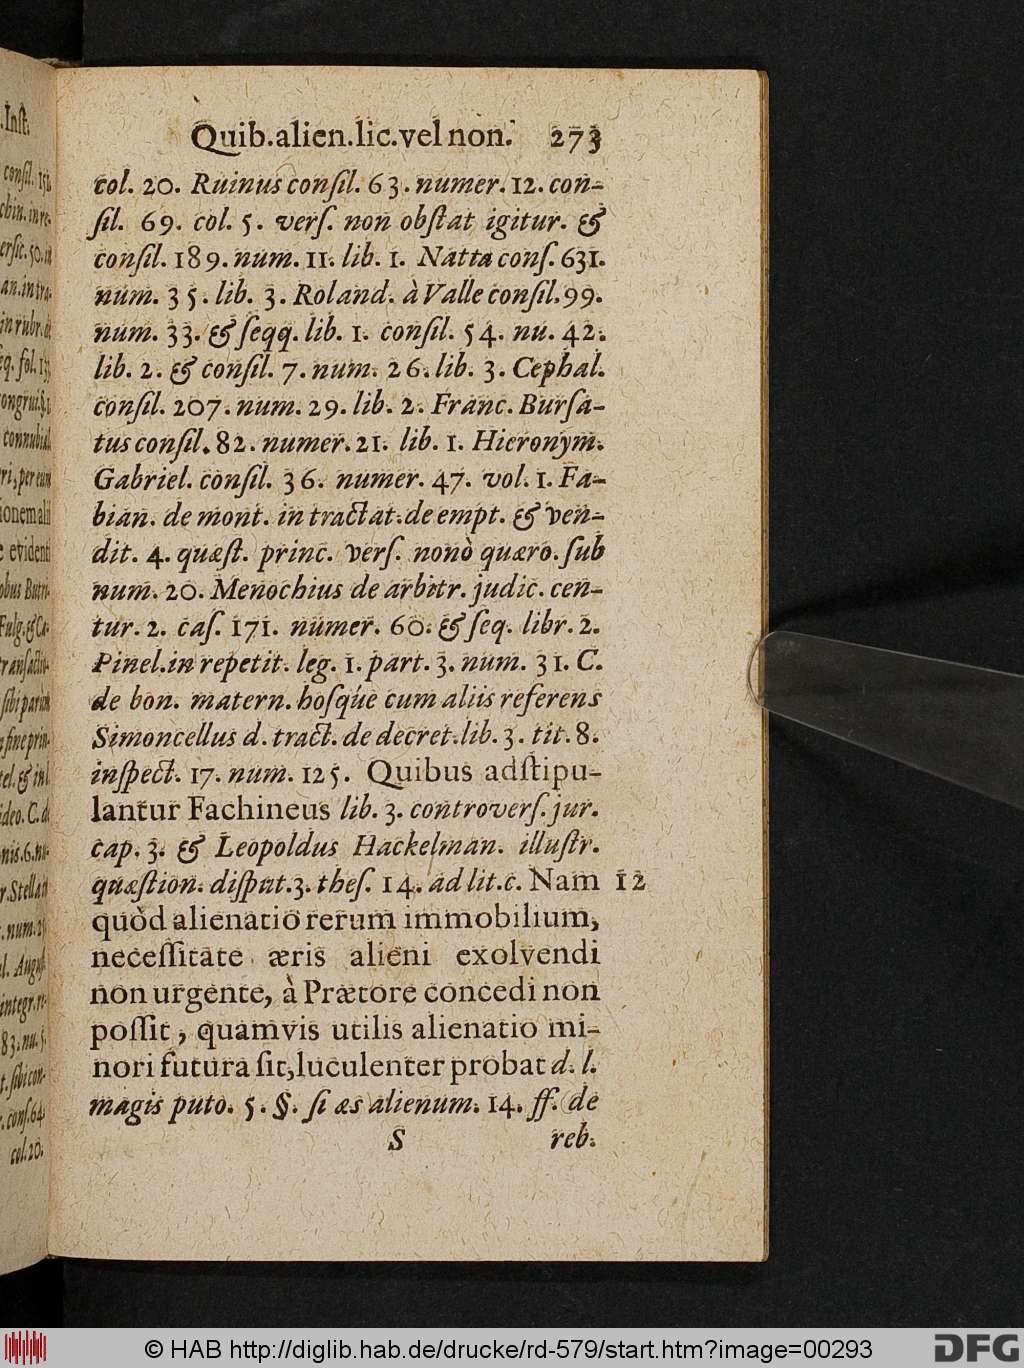 Quib.alien.lic.vel non. 273
col. 20. Ruinus conſil. 63. numer. 12. con-
ſil. 69. col. 5. verſ. non obſtat igitur. &
conſil. 189. num. 11. lib. 1. Natta conſ. 631.
num. 35. lib. 3. Roland. à Valle conſil. 99.
num. 33. & ſeqq. lib. 1. conſil. 54. nu. 42.
lib. 2. & conſil. 7. num. 26. lib. 3. Cephal.
conſil. 207. num. 29. lib. 2. Franc. Burſa-
tus conſil. 82. numer. 21. lib. 1. Hieronym.
Gabriel. conſil. 36. numer. 47. vol. 1. Fa-
bian. de mont. in tractat. de empt. & ven-
dit. 4. quæſt. princ. verſ. nonò quæro. ſub
num. 20. Menochius de arbitr. judic. cen-
tur. 2. caſ. 171. numer. 60. & ſeq. libr. 2.
Pinel. in repetit. leg. 1. part. 3. num. 31. C.
de bon. matern. hoſque cum aliis referens
Simoncellus d. tract. de decret. lib. 3. tit. 8.
inſpect. 17. num. 125. Quibus adſtipu-
lantur Fachineus lib. 3. controverſ. jur.
cap. 3. & Leopoldus Hackelman. illuſtr.
quæſtion. diſput. 3. theſ. 14. ad lit. c. Nam 12
quòd alienatio rerum immobilium,
neceſſitate æris alieni exolvendi
non urgente, à Prætore concedi non
poſſit, quamvis utilis alienatio mi-
nori futura ſit, luculenter probat d. l.
magis puto. 5. §. ſi æs alienum. 14. ff. de
S reb.
© HAB http://diglib.hab.de/drucke/rd-579/start.htm?image=00293
DFG